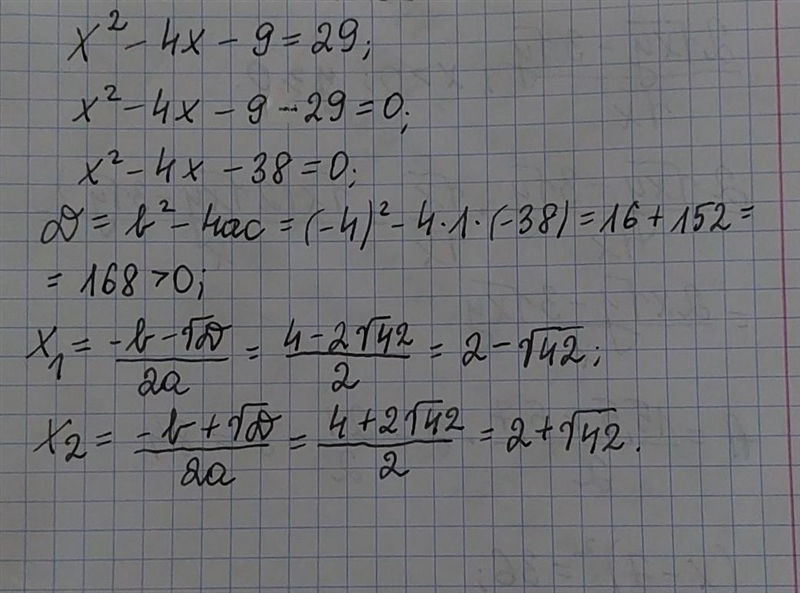 x² - 4x - 9 = 29;
x² - 4x - 9 - 29 = 0;
x² - 4x - 38 = 0;
D = b² - 4ac = (-4)² - 4·1·(-38) = 16 + 152 =
= 168 > 0;
x₁ = (-b - √D)/(2a) = (4 - 2√42)/2 = 2 - √42;
x₂ = (-b + √D)/(2a) = (4 + 2√42)/2 = 2 + √42.